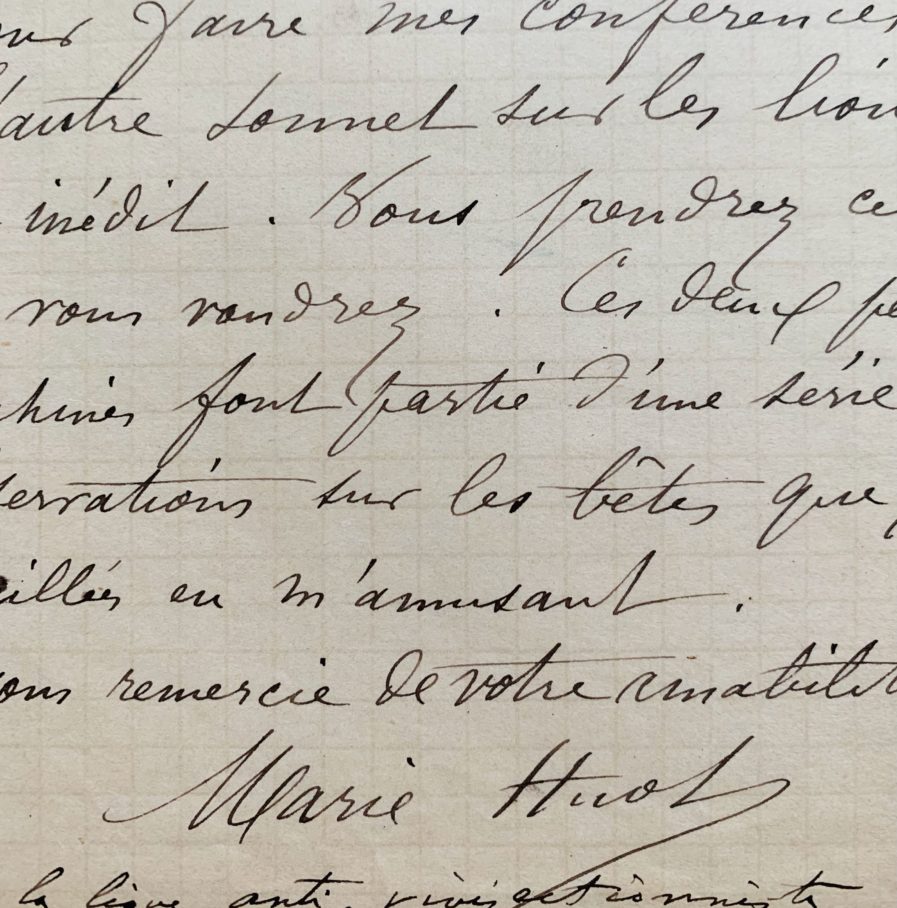 pour faire mes conférences
l'autre sonnet sur les lion
inédit. Vous prendrez ce
vous voudrez. Ces deux pe
chines font partie d'une série
servations sur les bêtes que
cillées en m'amusant.
vous remercie de votre amabilit
Marie Huot
la ligue anti-vivisectionniste